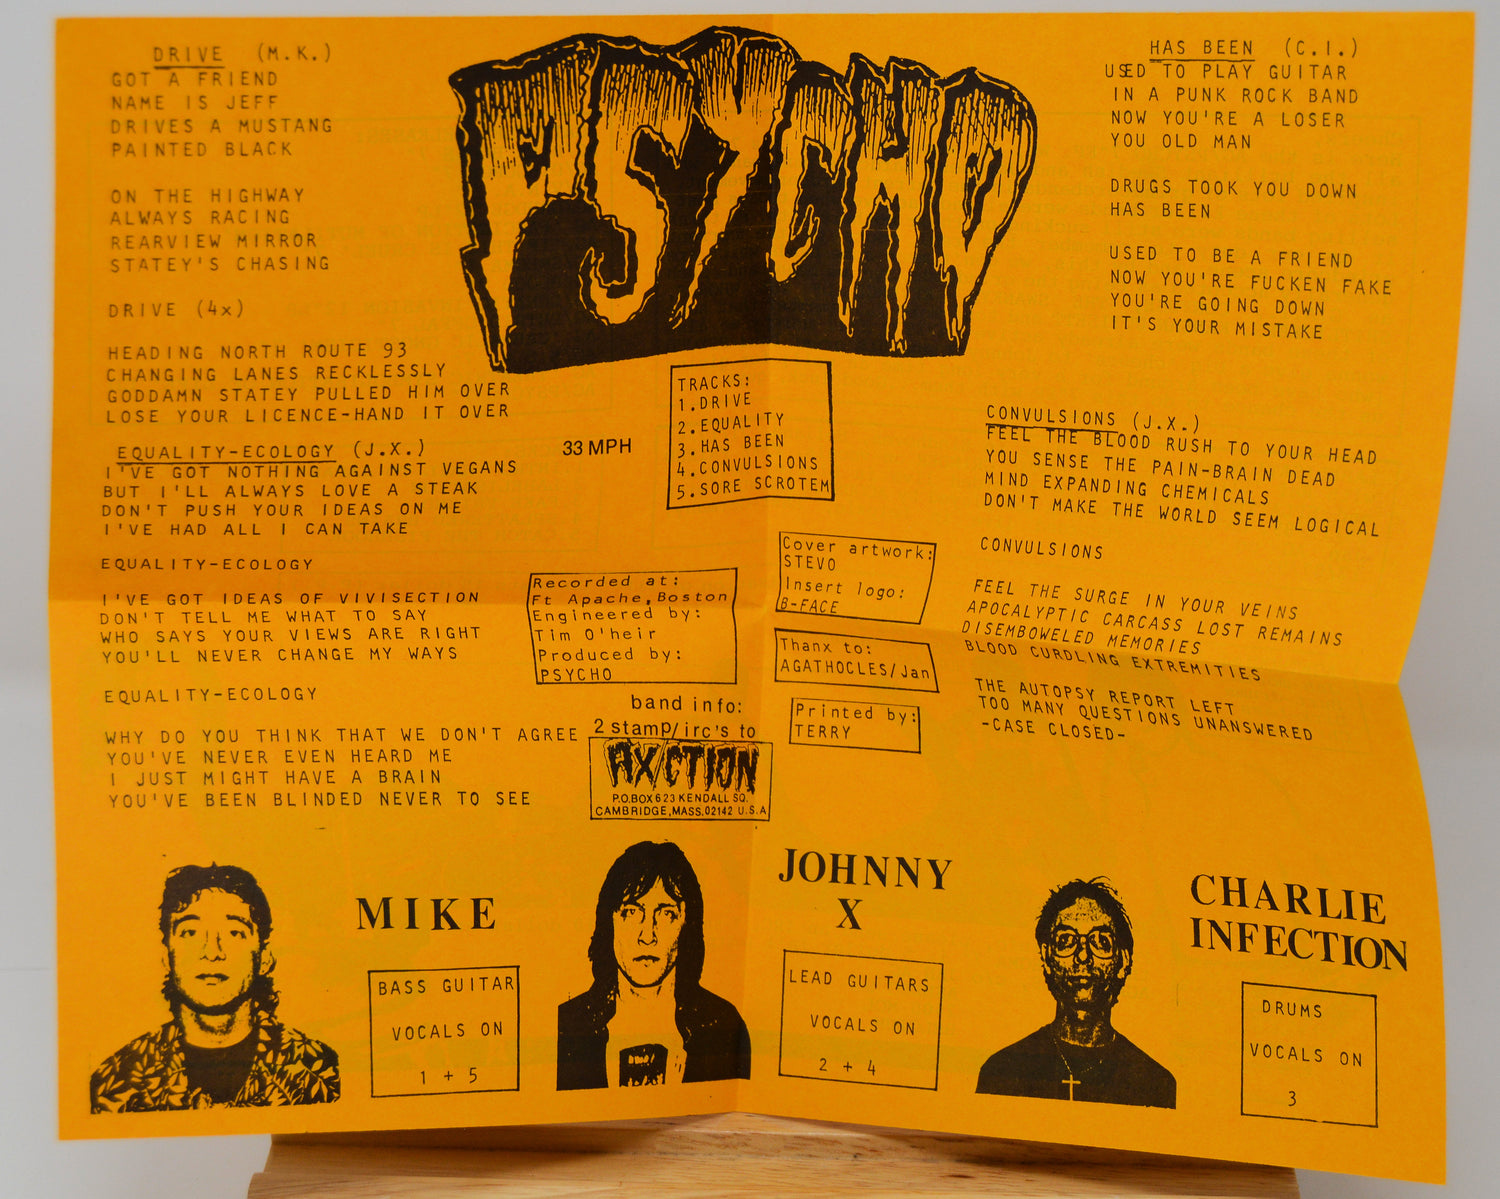 DRIVE (M.K.)
GOT A FRIEND
NAME IS JEFF
DRIVES A MUSTANG
PAINTED BLACK
ON THE HIGHWAY
ALWAYS RACING
REARVIEW MIRROR
STATEY'S CHASING
DRIVE (4x)
HEADING NORTH ROUTE 93
CHANGING LANES RECKLESSLY
GODDAMN STATEY PULLED HIM OVER
LOSE YOUR LICENCE-HAND IT OVER
EQUALITY-ECOLOGY (J.X.)
I'VE GOT NOTHING AGAINST VEGANS
BUT I'LL ALWAYS LOVE A STEAK
DON'T PUSH YOUR IDEAS ON ME
I'VE HAD ALL I CAN TAKE
EQUALITY-ECOLOGY
I'VE GOT IDEAS OF VIVISECTION
DON'T TELL ME WHAT TO SAY
WHO SAYS YOUR VIEWS ARE RIGHT
YOU'LL NEVER CHANGE MY WAYS
EQUALITY-ECOLOGY
WHY DO YOU THINK THAT WE DON'T AGREE
YOU'VE NEVER EVEN HEARD ME
I JUST MIGHT HAVE A BRAIN
YOU'VE BEEN BLINDED NEVER TO SEE
PSYCHO
33 MPH
TRACKS:
1.DRIVE
2.EQUALITY
3.HAS BEEN
4.CONVULSIONS
5.SORE SCROTEM
Recorded at:
Ft Apache,Boston
Engineered by:
Tim O'heir
Produced by:
PSYCHO
Cover artwork:
STEVO
Insert logo:
B-FACE
Thanx to:
AGATHOCLES/Jan
Printed by:
TERRY
band info:
2 stamp/irc's to
AX/CTION
P.O.BOX 623 KENDALL SQ.
CAMBRIDGE,MASS.02142 U.S.A
HAS BEEN (C.I.)
USED TO PLAY GUITAR
IN A PUNK ROCK BAND
NOW YOU'RE A LOSER
YOU OLD MAN
DRUGS TOOK YOU DOWN
HAS BEEN
USED TO BE A FRIEND
NOW YOU'RE FUCKEN FAKE
YOU'RE GOING DOWN
IT'S YOUR MISTAKE
CONVULSIONS (J.X.)
FEEL THE BLOOD RUSH TO YOUR HEAD
YOU SENSE THE PAIN-BRAIN DEAD
MIND EXPANDING CHEMICALS
DON'T MAKE THE WORLD SEEM LOGICAL
CONVULSIONS
FEEL THE SURGE IN YOUR VEINS
APOCALYPTIC CARCASS LOST REMAINS
DISEMBOWELED MEMORIES
BLOOD CURDLING EXTREMITIES
THE AUTOPSY REPORT LEFT
TOO MANY QUESTIONS UNANSWERED
-CASE CLOSED-
MIKE
BASS GUITAR
VOCALS ON
1 + 5
JOHNNY
X
LEAD GUITARS
VOCALS ON
2 + 4
CHARLIE
INFECTION
DRUMS
VOCALS ON
3